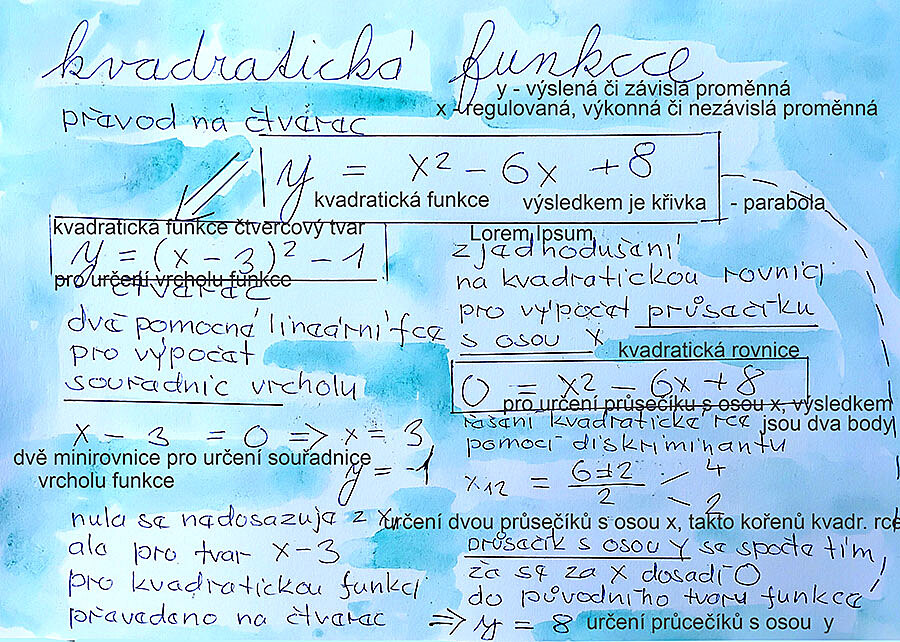 kvadratická funkce
y - výslená či závislá proměnná
x - regulovaná, výkonná či nezávislá proměnná
převod na čtverec
y = x² - 6x + 8
kvadratická funkce
výsledkem je křivka - parabola
kvadratická funkce čtvercový tvar
y = (x - 3)² - 1
pro určení vrcholu funkce
čtverec
dvě pomocné lineární fce
pro výpočet
souřadnic vrcholu
x - 3 = 0 => x = 3
dvě minirovnice pro určení souřadnice
y = -1
vrcholu funkce
nula se nedosazuje z x,
ale pro tvar x-3
pro kvadratickou funkci
převedeno na čtverec
Lorem Ipsum
zjednodušení
na kvadratickou rovnici
pro výpočet průsečíku
s osou X
kvadratická rovnice
0 = x² - 6x + 8
pro určení průsečíku s osou x, výsledkem
jsou dva body
řešení kvadratické rce
pomocí diskriminantu
x12 = 6±2 / 2
4
2
určení dvou průsečíků s osou x, takto kořenů kvadr. rce
průsečík s osou Y se spočte tím,
že se za X dosadí 0
do původního tvaru funkce
=> y = 8
určení průcečíků s osou y